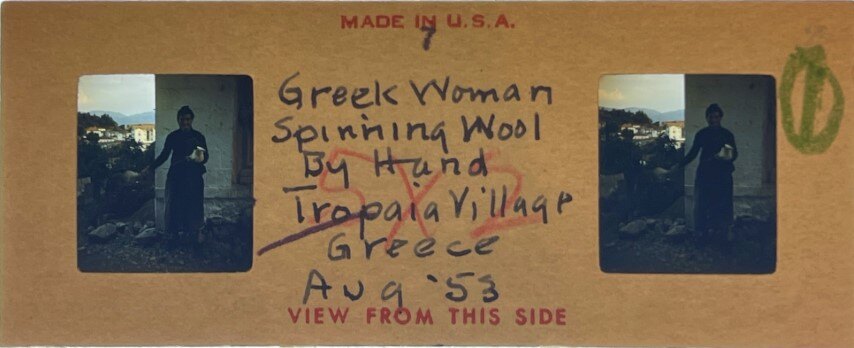 MADE IN U.S.A.
7
Greek Woman
Spinning Wool
By Hand
5X2
Tropaia Village
Greece
Aug '53
VIEW FROM THIS SIDE
1